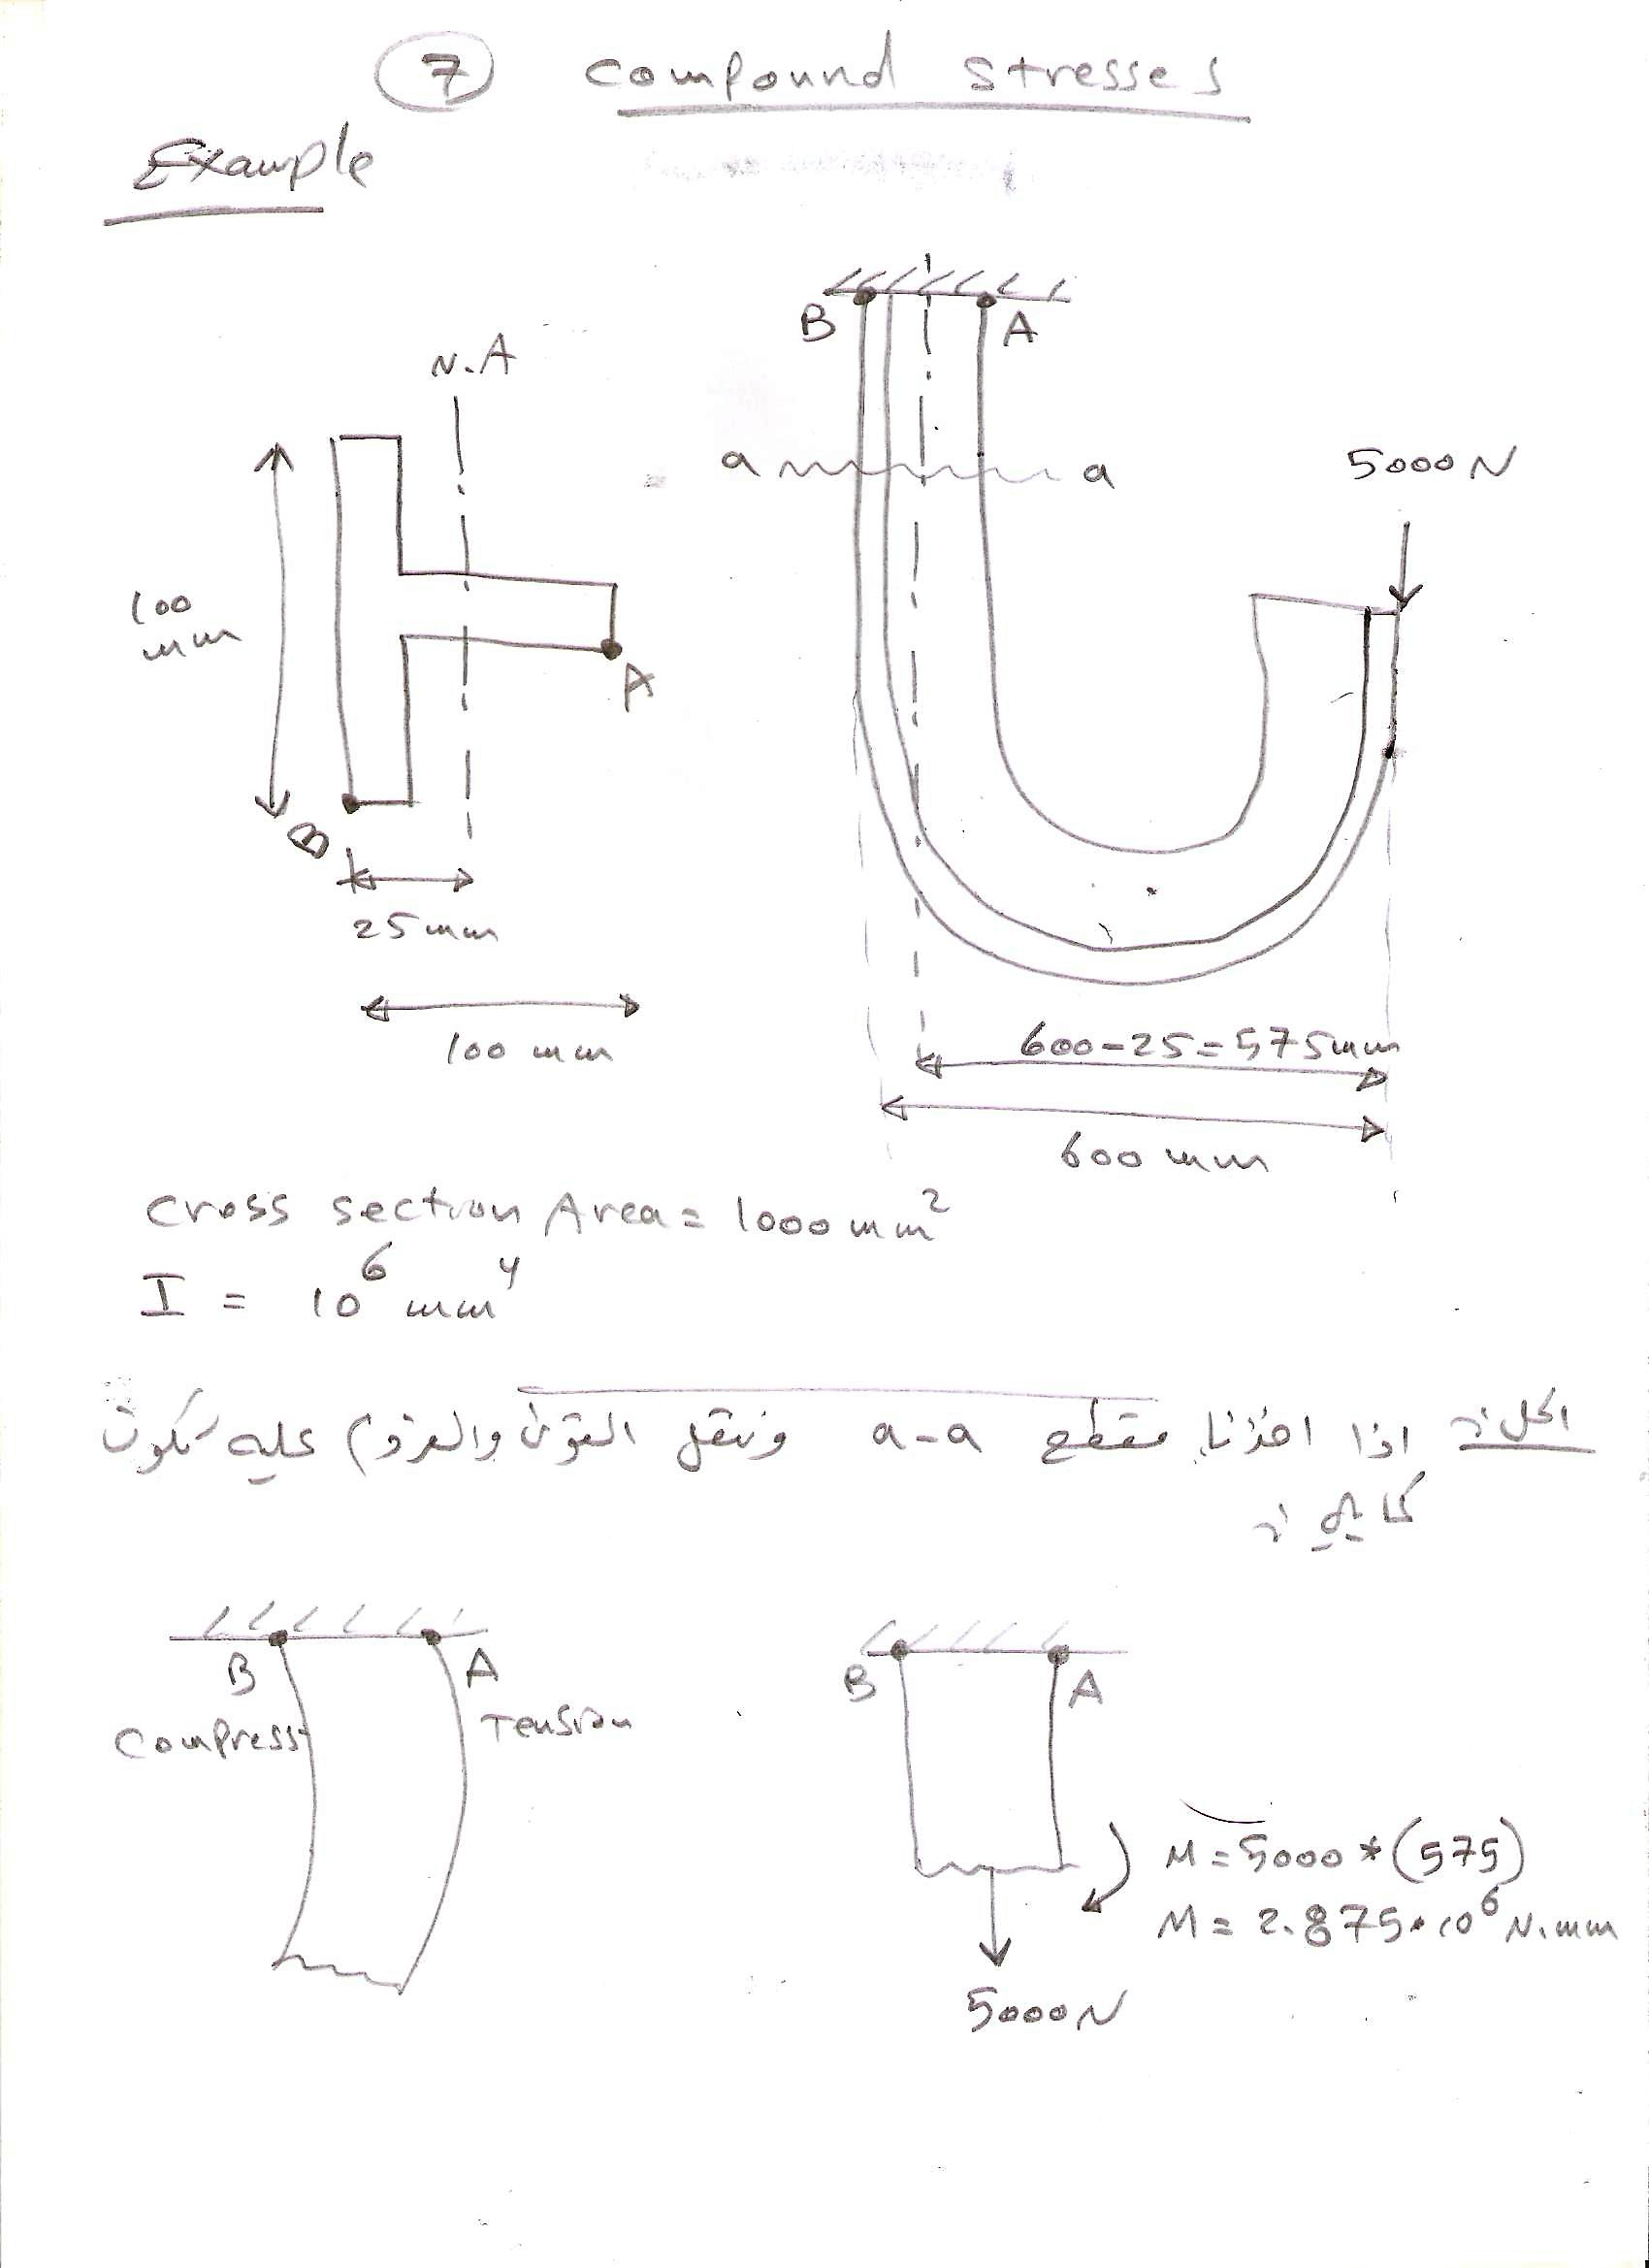 7 Compound Stresses
Example
N.A
B
A
a a
5000N
100
mm
A
B
25mm
100 mm
600-25=575mm
600 mm
Cross section Area = 1000 mm²
I = 10⁶ mm⁴
الحل: اذا اخذنا مقطع a-a وننقل القوى والعزوم عليه تكون
كما يلي:
B
A
Compress
Tension
B
A
M = 5000 * (575)
M = 2.875*10⁶ N.mm
5000N